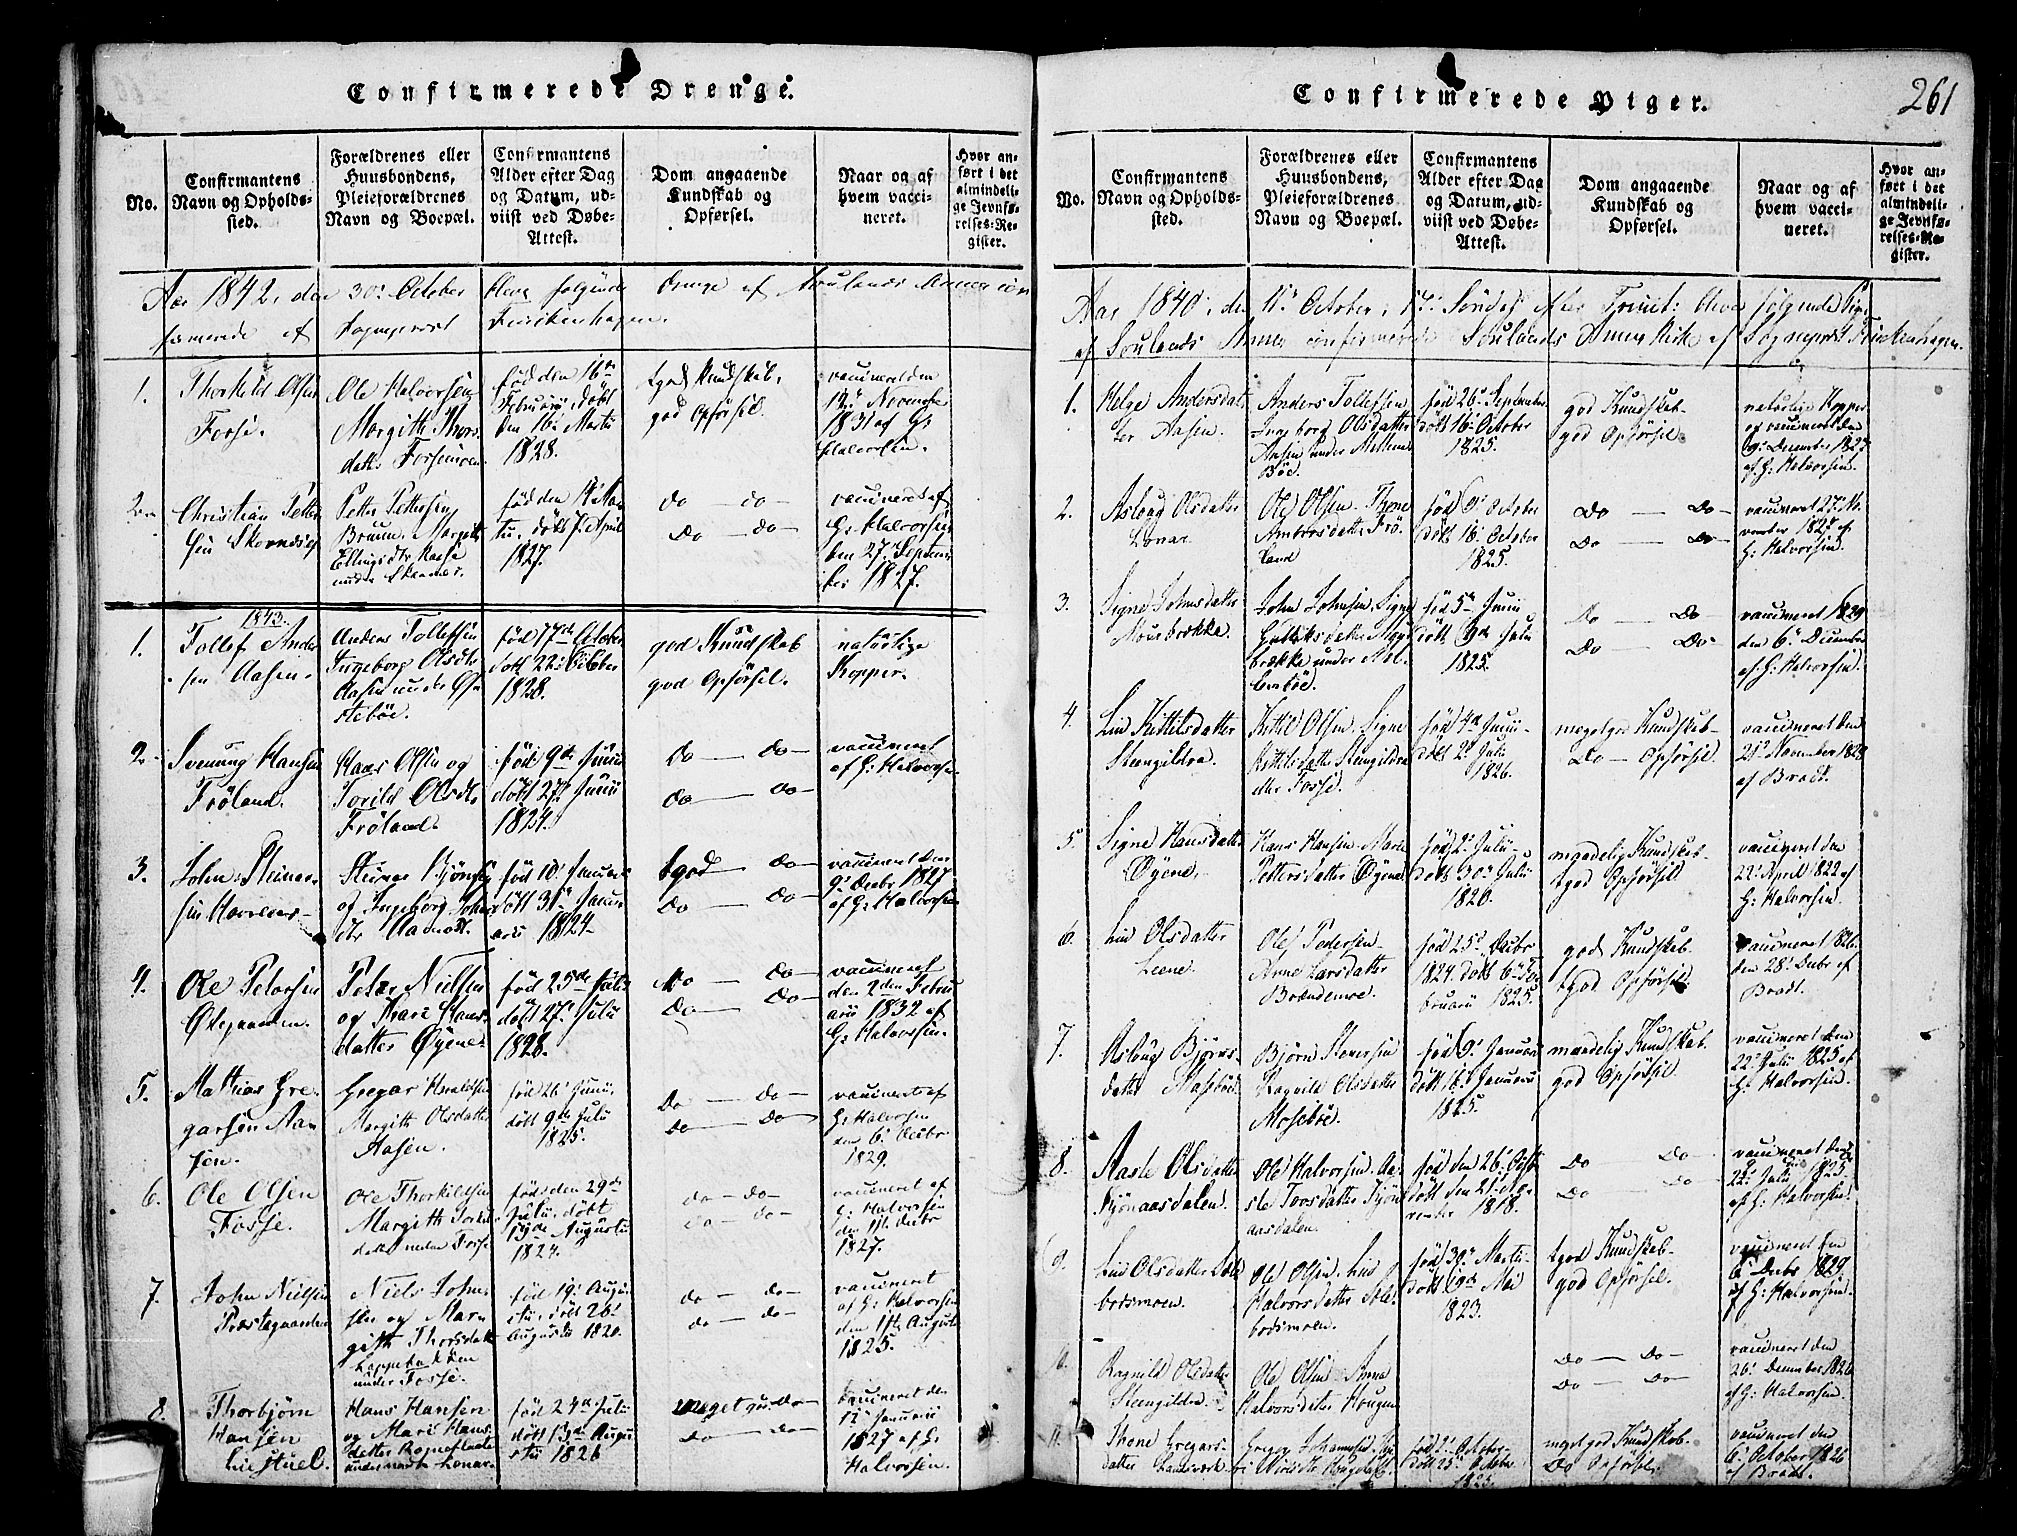 Confirmerede Drenge.
No.
Confirmantens
Navn og Opholds-
sted.
Forældrenes eller
Huusbondens,
Pleieforældrenes
Navn og Boepæl.
Confirmantens
Alder efter Dag
og Datum, ud-
viist ved Døbe-
Attest.
Dom angaaende
Kundskab og
Opførsel.
Naar og af
hvem vacci-
neret.
Hvor an-
ført i det
almindeli-
ge Jevnfø-
relses-Re-
gister.
Aar 1842, den 30. October bleve følgende Drenge af Soulands Annex con
firmerede af Sognepræst Finckenhagen.
1.
Thorkild Olsen
Fosse.
Ole Halvorsen
Margith Thors-
datter
fød den 16de
Februarii, døbt
den 16. Martii
1828.
tgod Kundskab,
god Opførsel.
vaccineret den
12. Novembr
1831 af G.
Halvorsen.
2.
Christian Petter
sen
Petter Pettersen
Bruun, Margith
Ellingsdtr
under
døbt 7. April
1827.
do — do —
do — do —
vaccineret af
G. Halvorsen
den 27. Septem
ber 1827.
1843.
1.
Tollef Ander
sen Aasen.
Anders Tollefsen
Ingeborg Olsdtr
Aasen under Øi
stebøe.
fød 17de October
døbt 22. October
1828.
god Kundskab
god Opførsel.
naturlige
Kopper.
2.
Svenning Hansen
Frøland.
Hans Olsen og
Torild Olsdtr
Frøland.
fød 9de Junii
døbt 27. Junii
1824.
do — do —
do — do —
vaccineret
af G. Halvorsen
3.
John Steinar
sen
Steinar Bjønsen
og Ingeborg Johns
dtr
fød 10. Januar
døbt 31. Janu
arii 1824.
tgod — do —
do — do —
vaccineret den
9. Decbr 1827
af G. Halvorsen
4.
Ole Petersen
Peter Nielsen
og Kari Hans
datter Øyene
fød 25de Julii
døbt 27. Julii
1828.
do — do —
do — do —
vaccineret
den 2den Febru
arii 1832 af
G. Halvorsen.
5.
Mathias Gre
garsen Aa
sen.
Gregar Heraldsen
Margith Olsdatter
Aasen.
fød 26. Junii,
døbt 9de Julii
1825.
do — do —
do — do
vaccineret af
G. Halvorsen
den 6. Decbr
1829.
6.
Ole Olsen
Fosse.
Ole Thorkildsen
Margith Torkils
datter neden Fosse
fød den 29de
Julii, døbt
Augustii
1827.
do — do —
do — do —
vaccineret af
G. Halvorsen
den 11. Decbr
1827.
7.
John Nielsen
Præstegaarden
Niels John
sen og Mar
gith Thorsdatt
under Fosse.
fød 19. Augu
stii, døbt 26.
Augusti 1820.
do — do —
do — do —
vaccineret
af G. Halvorsen
den 11te August
1825.
8.
Thorbjørn
Hansen
Liestuel.
Hans Hansen
og Mari Hans
datter
fød 24de Julii
døbt 13de Augu
stii 1826
meget god do —
do — do —
vaccineret den
12. Januarii
1827 af G.
Halvorsen.
Confirmerede Piger.
261
No.
Confirmantens
Navn og Opholds-
sted.
Forældrenes eller
Huusbondens,
Pleieforældrenes
Navn og Boepæl.
Confirmantens
Alder efter Dag
og Datum, ud-
viist ved Døbe-
Attest.
Dom angaaende
Kundskab og
Opførsel.
Naar og af
hvem vacci-
neret.
Hvor an-
ført i det
almindeli-
ge Jevnfø-
relses-Re-
gister.
Aar 1840, den 11. October, 17. Søndag efter Trinit: bleve følgende Pige
af Soulands Annex confirmerede i Soulands Annex Kirke af Sognepræst Finckenhagen.
1.
Helge Andersdat
ter Aasen.
Anders Tollefsen
Ingeborg Olsdatter
Aasen under
Bøe.
fød 26. September
døbt 16. October
1825.
god Kundskab
god Opførsel.
naturlige Kopper
og vaccineret den
9. December 1827
af G. Halvorsen.
2.
Aslaug Olsdatter
Lonar
Ole Olsen. Thone
Ambrosdatter Frö
land
fød 9. October
døbt 16. October
1825.
Do — Do —
Do — Do —
vaccineret 27. No
vember 1827 af
G. Halvorsen.
3.
Signe Johnsdatter
Mousbrække.
John Johnsen, Signe
brække under
fød 5te Junii
døbt 3de Julii
1825.
Do — Do
Do — Do
vaccineret 1829
den 6. December
af G. Halvorsen.
4.
Liv Kittilsdatter
Stengildra.
Kittil Olsen, Signe
Kittilsdatter Stengildra
eller Fosse.
fød 4de Junii
døbt 2. Julii
1826.
meget god Kundskab
Do — Opførsel.
vaccineret den
21. November 1828
af Bradt.
5.
Signe Hansdatter
Øyene.
Hans Hansen. Marie
Pettersdatter Øyene
fød 2. Julii
døbt 30. Julii
1826.
maadelig Kundskab
tgod Opførsel
vaccineret den
22. April 1822 af
G. Halvorsen.
6.
Liv Olsdatter
Leene.
Ole Pedersen
Anne Larsdatter
Brændemoe.
fød 25. Decbr
1824. døbt 6. Fe
bruarii 1825.
god Kundskab.
tgod Opførsel.
vaccineret 1826.
den 28. Decbr af
Bradt.
7.
Aslaug Bjørns-
datter
Bjørn
Ragnild Olsdatter
Mosebøe.
fød 9. Januarii
døbt 16. Januarii
1825.
maadelig Kundskab.
god Opførsel
vaccineret den
22. Julii 1825 af
G. Halvorsen.
8.
Aaste Olsdatter
Tjønaasdalen.
Ole Halvorsen. Aa
ste Torsdatter Tjøn
aasdalen.
fød den 26. Octbr
døbt den 21. No
vember 1818.
Do — Do —
Do — Do
vaccineret den
22. Julii 1825
af G. Halvorsen.
9.
Liv Olsdatter
bodsmoen.
Ole Olsen. Liv
Halvorsdatter
bodsmoen.
fød 30. Martii
døbt 19de Mai
1823.
tgod Kundskab
god Opførsel.
vaccineret den
6. Decbr 1829.
af G. Halvorsen.
10.
Ragnild Olsdatter
Stengildra.
Ole Olsen Anna
Halvorsdatter Hougen
Do — Do —
Do — Do
vaccineret den
26. December 1826
af G. Halvorsen.
11.
Thone Gregars-
datter
fød 2. October
døbt 23. October
1825.
meget god Kundskab.
Do Opførsel.
vaccineret den
6. October 1826
af Bradt.